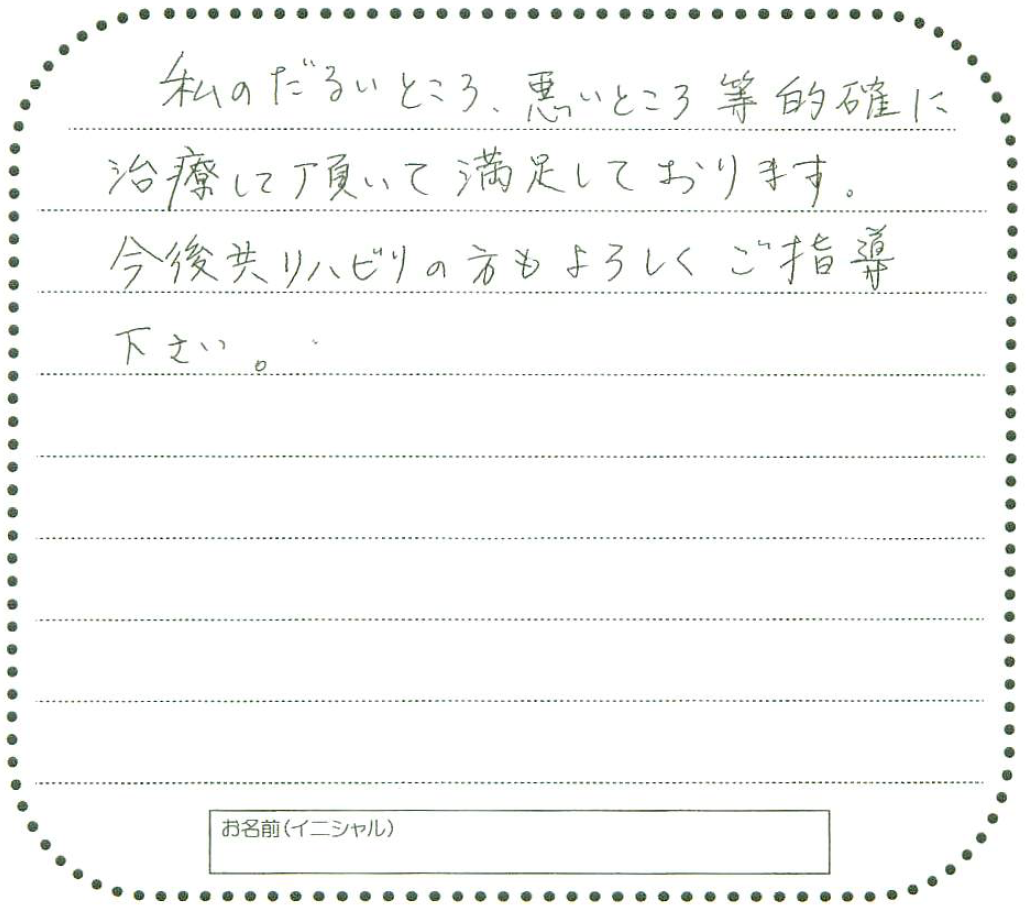 私のだるいところ、悪いところ等的確に
治療して頂いて満足しております。
今後共リハビリの方もよろしくご指導
下さい。
お名前(イニシャル)